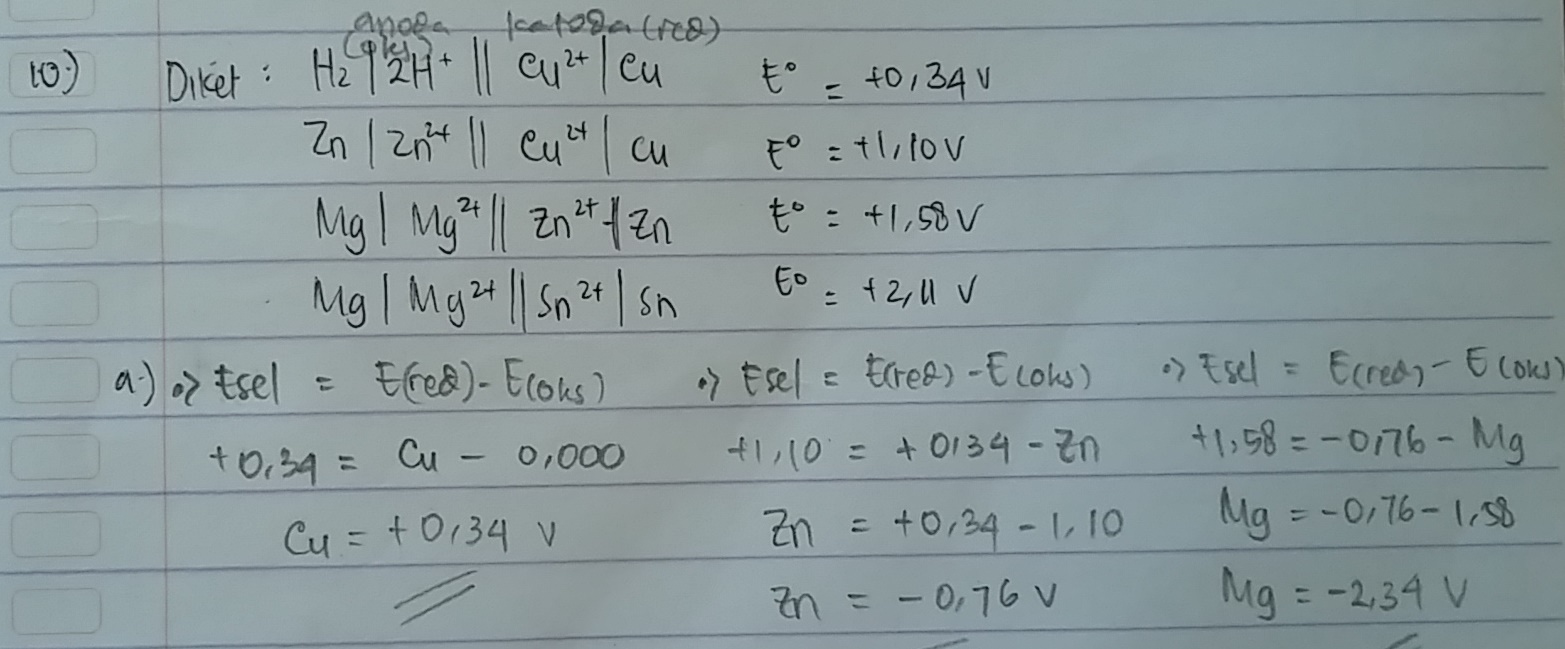 anoda katoda (red)
(oks)
10.) Diket : H₂ | 2H⁺ || Cu²⁺ | Cu E° = +0,34 V
Zn | Zn²⁺ || Cu²⁺ | Cu E° = +1,10 V
Mg | Mg²⁺ || Zn²⁺ | Zn E° = +1,58 V
Mg | Mg²⁺ || Sn²⁺ | Sn E° = +2,11 V
a.) => Esel = E(red) - E(oks) => Esel = E(red) - E(oks) => Esel = E(red) - E(oks)
+0,34 = Cu - 0,000 +1,10 = +0,34 - Zn +1,58 = -0,76 - Mg
Cu = +0,34 V Zn = +0,34 - 1,10 Mg = -0,76 - 1,58
Zn = -0,76 V Mg = -2,34 V